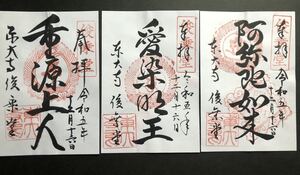 奉拝
令和五年
十二月十六日
重源上人
東大寺俊乗堂
奉拝
令和五年
十二月十六日
愛染明王
東大寺 俊乗堂
奉拝
令和五年
十二月十六日
阿弥陀如来
東大寺 俊乗堂